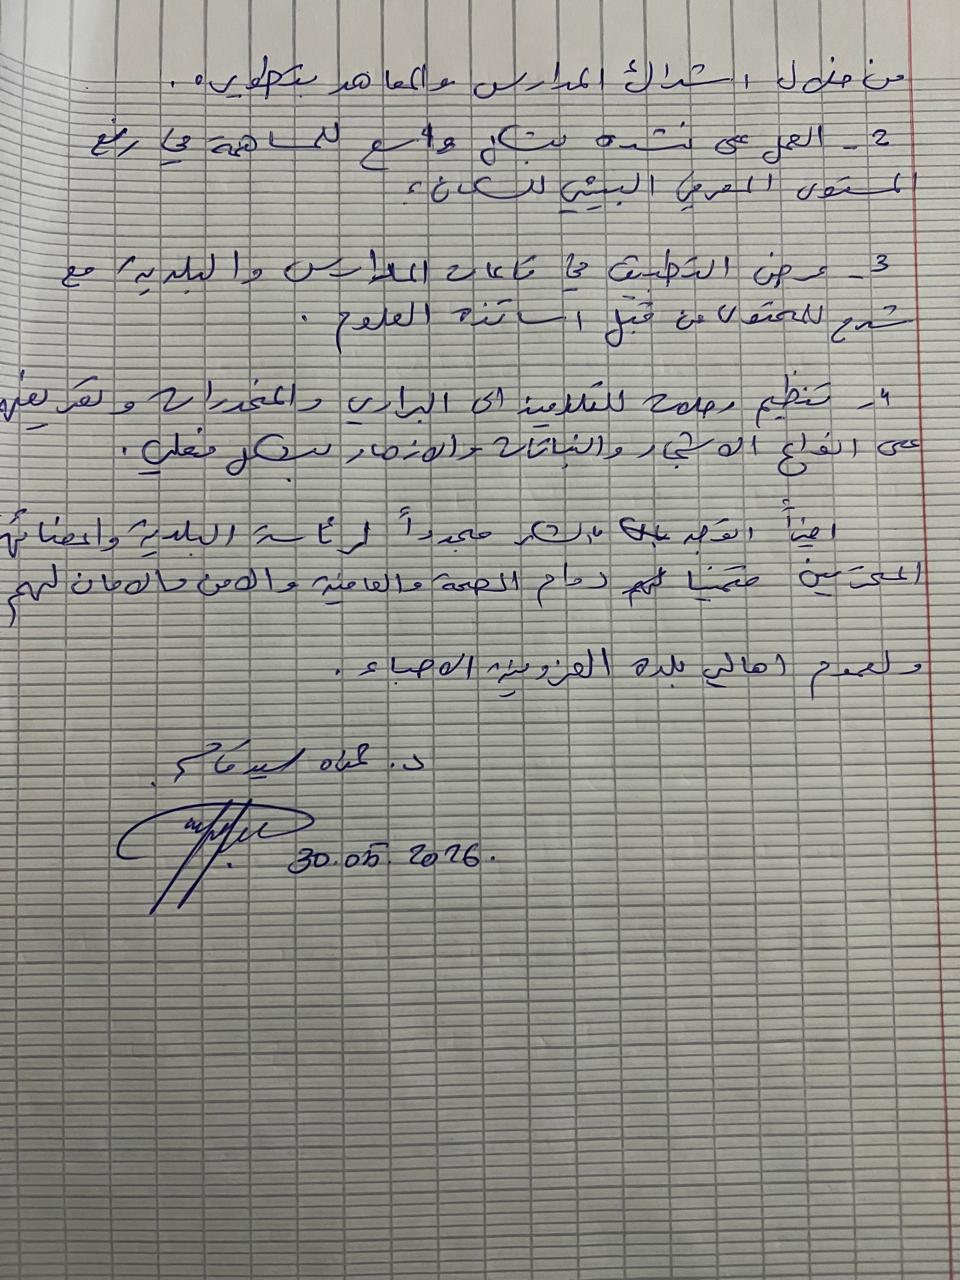 من خلال اشراك المدارس والمعاهد بتطويره.
2- العمل على نشره بشكل واسع للمساهمة في رفع
المستوى المعرفي البيئي للسكان.
3- عرض التطبيق في قاعات المدارس والبلدية، مع
شرح للمحتوى من قبل اساتذة العلوم.
4- تنظيم رحلات للتلامية الى البراري والمنحدرات وتعريفهم
على انواع الاشجار والنباتات والازهار بشكل فعلي.
ايضاً اتوجه بالشكر مجدداً لرئاسة البلدية واعضائها
المحترمين متمنيا لهم دوام الصحة والعافية والامن والامان لهم
ولعموم اهالي بلدة العزونية الاحباء.
د.
30.05.2026.